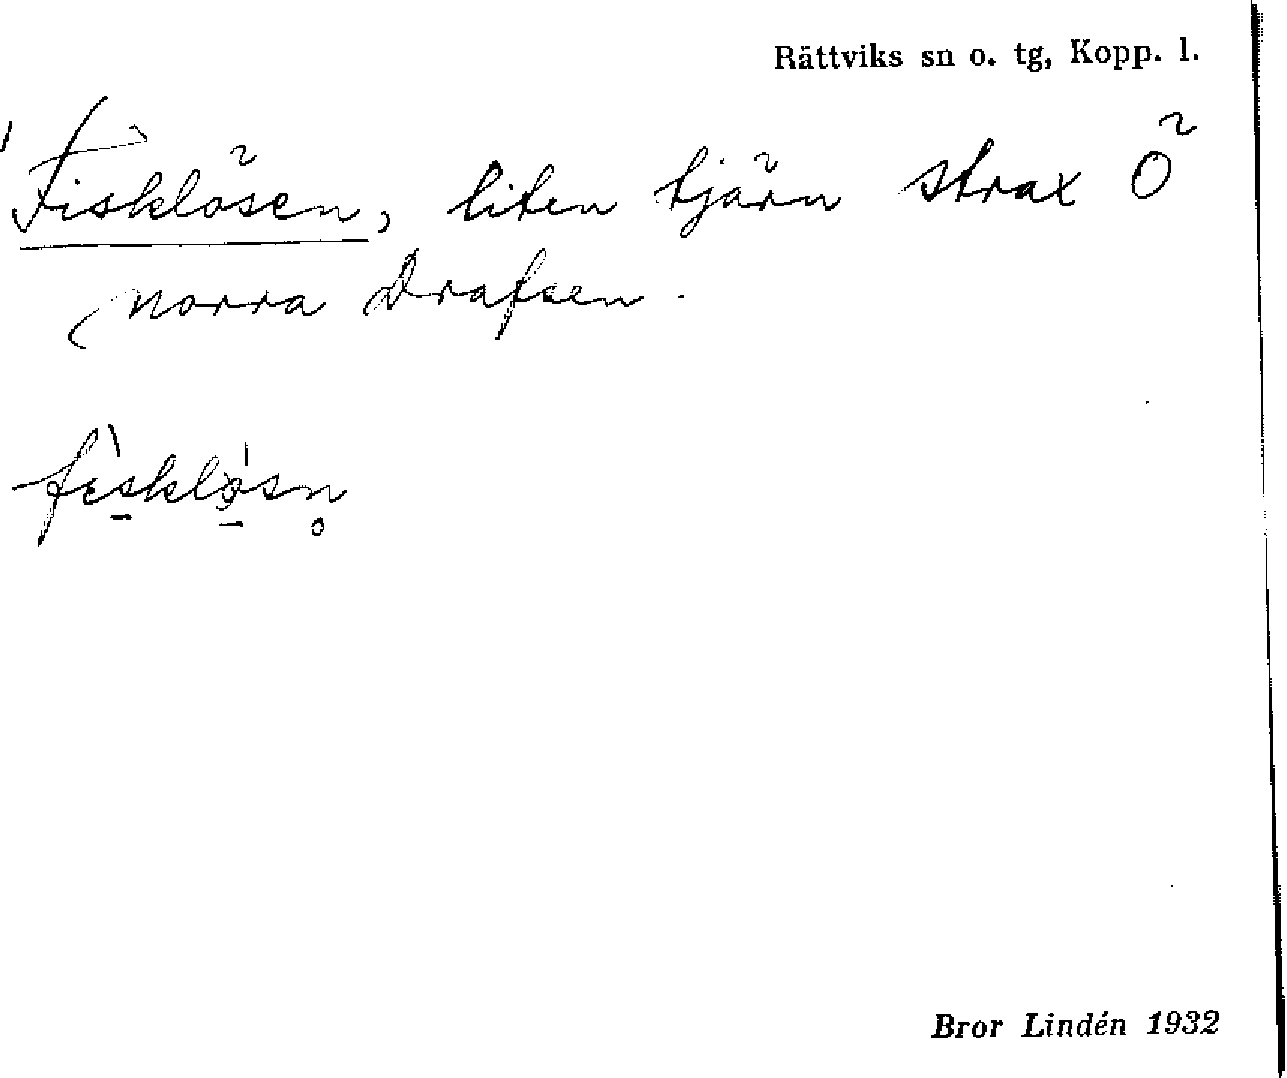 Rättviks sn o. tg, Kopp. l.
Fisklösen, liten tjärn strax Ö
norra Drafsen.
fisklösn
Bror Lindén 1932